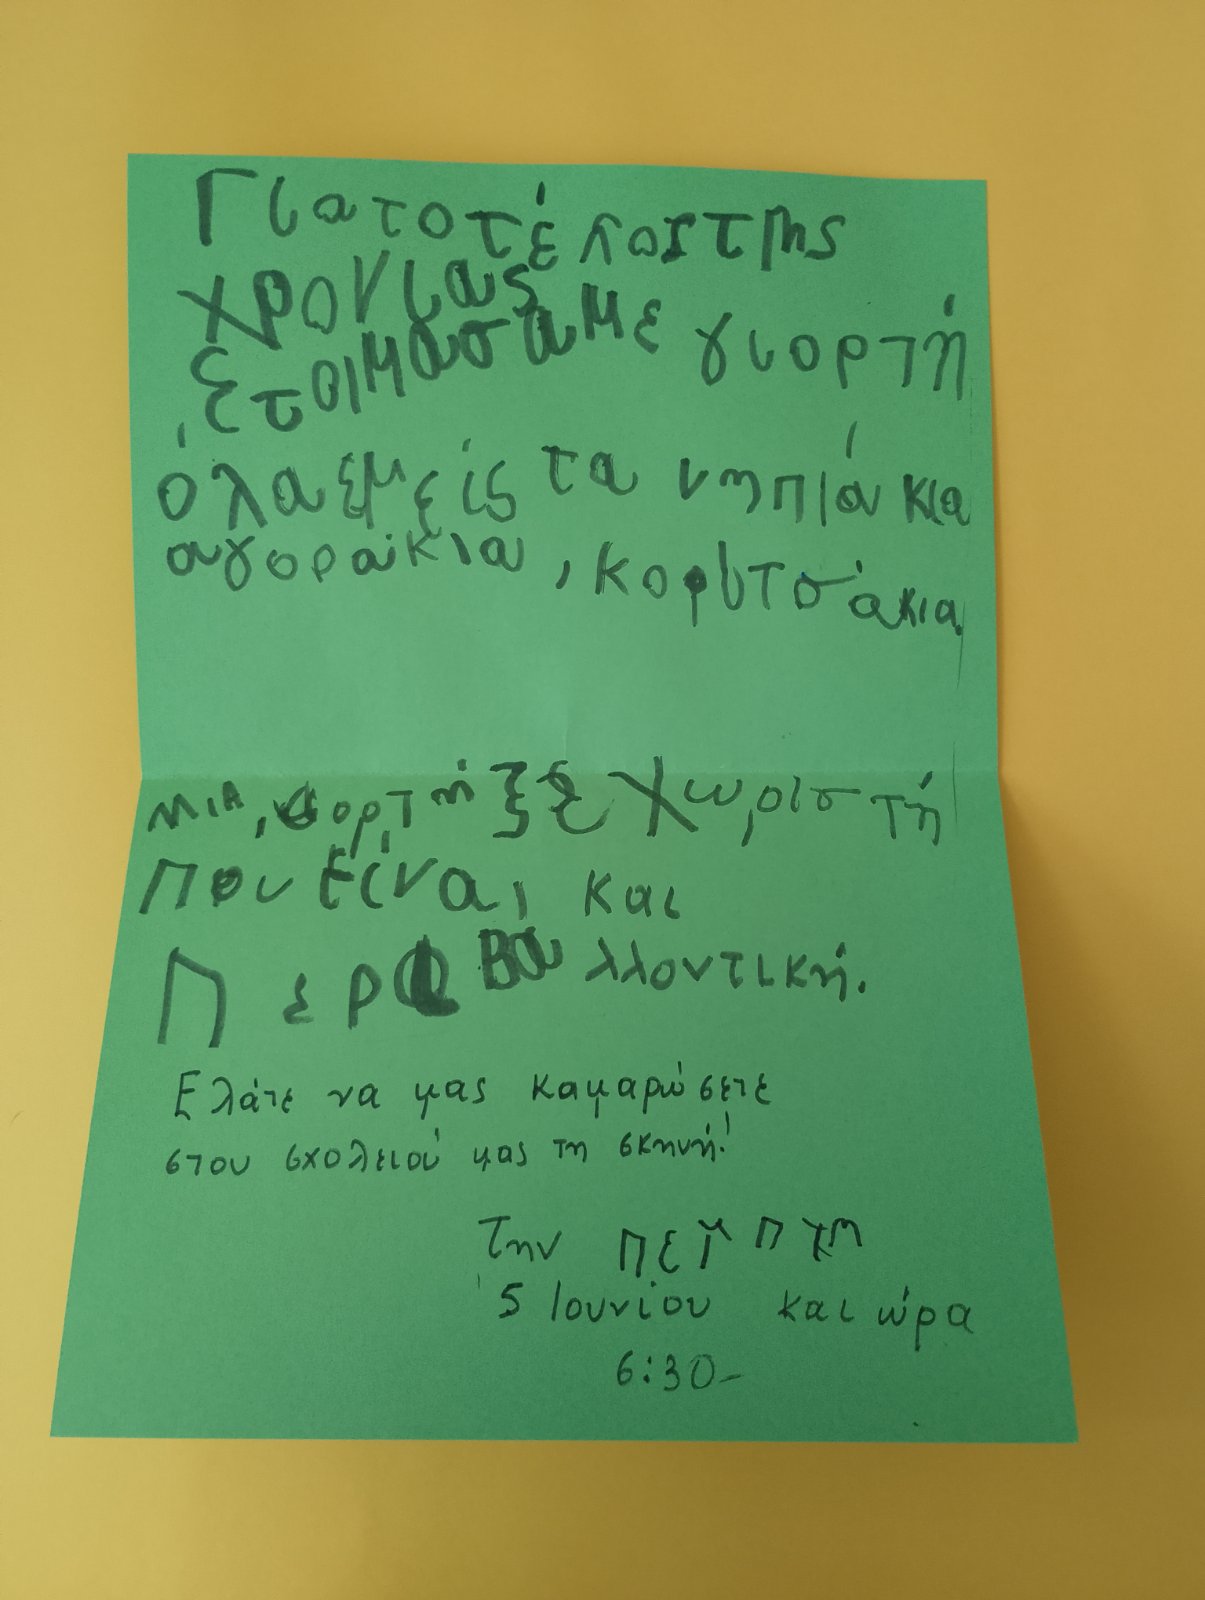 Για το τέλος της
χρονιας
ετοιμασαμε γιορτή
όλα εμείς τα νηπιάκια
αγοράκια, κορυτσάκια.
μια, γιορτή ξεχωριστή
που είναι και
Περιβαλλοντική.
Ελάτε να μας καμαρώσετε
στου σχολειού μας τη σκηνή!
Την πεμπτη
5 Ιουνίου και ώρα
6:30-